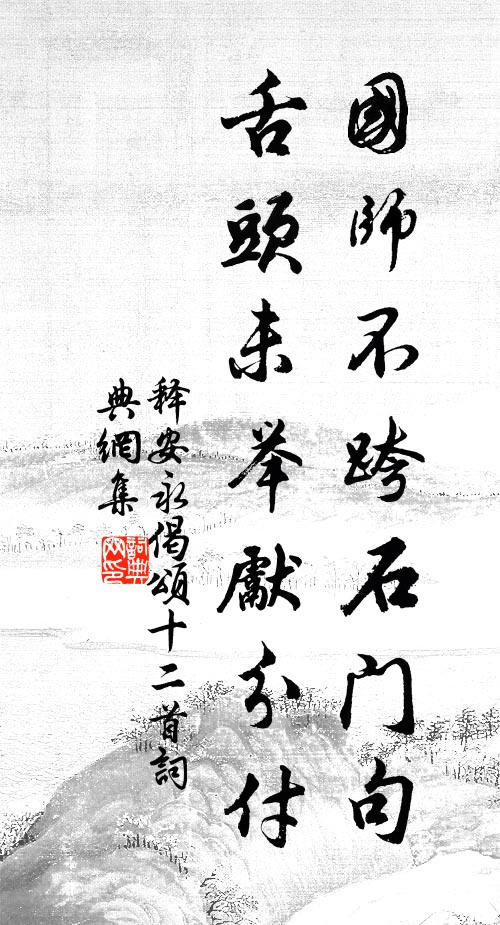 國師不跨石门句
舌頭未举獻分付
释安永偈頌十二首詞
典網集
詞典网印